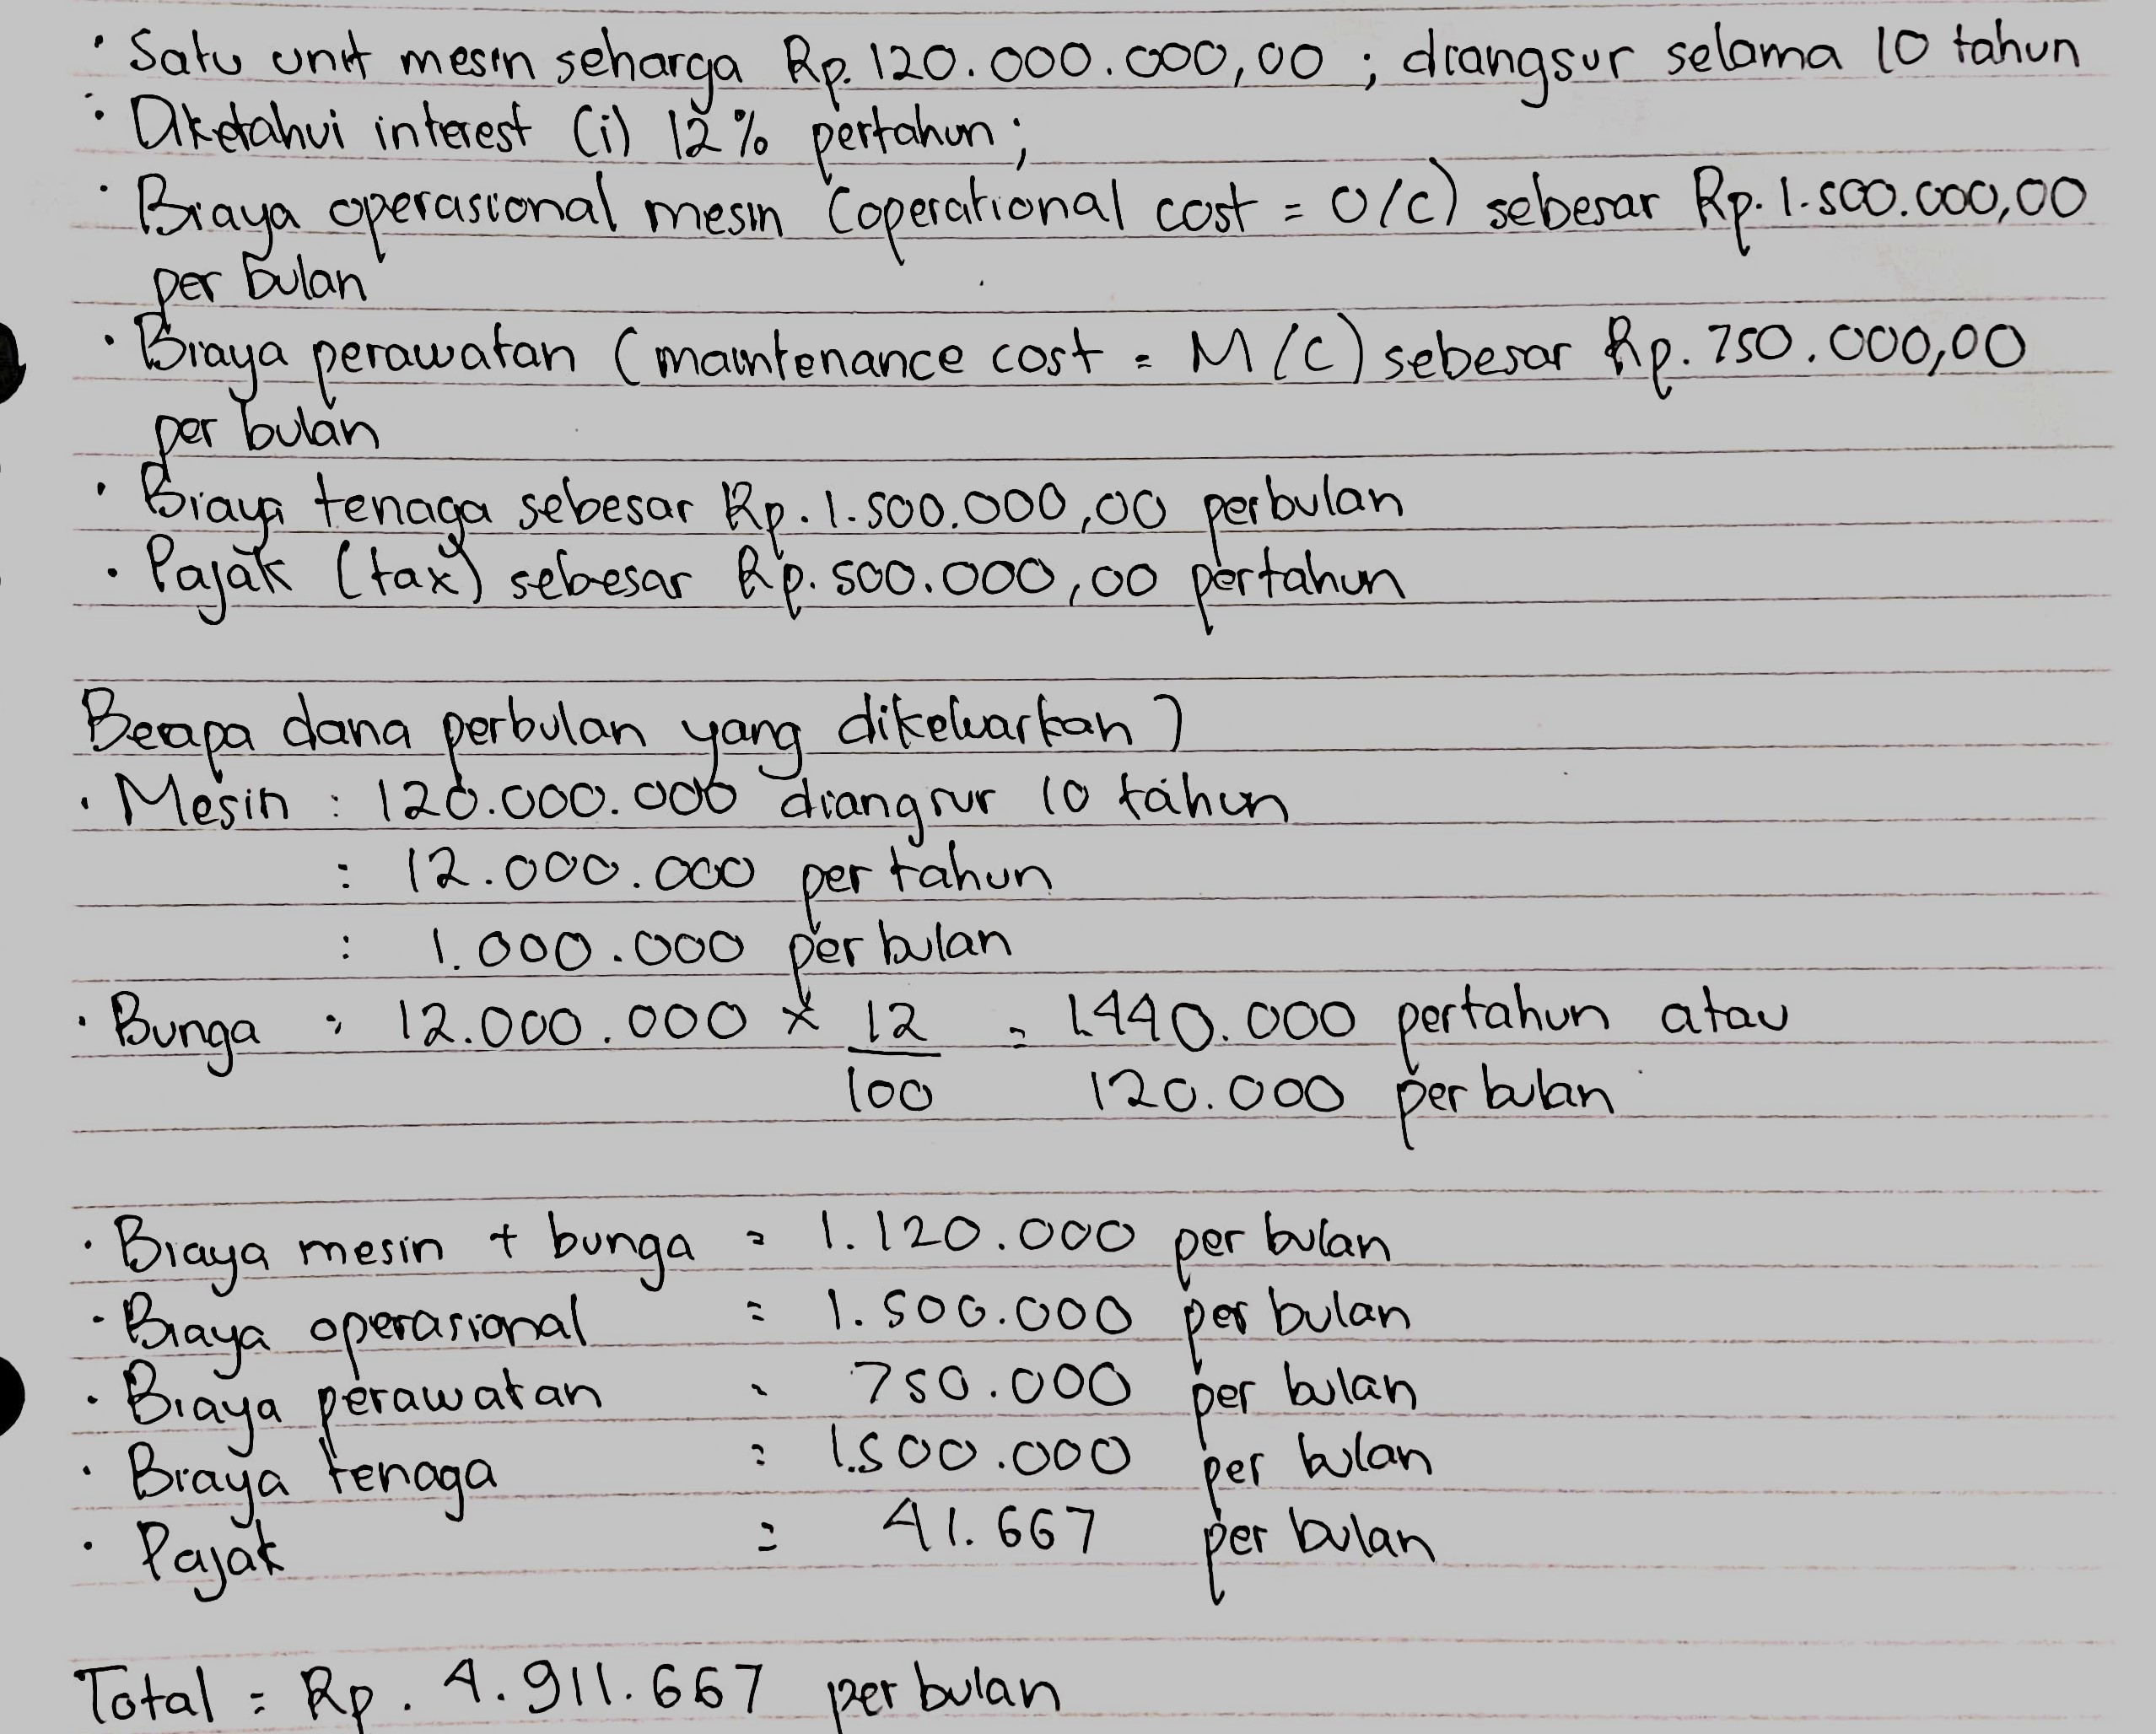 · Satu unit mesin seharga Rp. 120.000.000,00 ; diangsur selama 10 tahun
· Diketahui interest (i) 12% pertahun;
· Biaya operasional mesin (operational cost = O/C) sebesar Rp. 1.500.000,00
per bulan
· Biaya perawatan (maintenance cost = M/C) sebesar Rp. 750.000,00
per bulan
· Biaya tenaga sebesar Rp. 1.500.000,00 perbulan
· Pajak (tax) sebesar Rp. 500.000,00 pertahun
Berapa dana perbulan yang dikeluarkan?
· Mesin : 120.000.000 diangsur 10 tahun
: 12.000.000 per tahun
: 1.000.000 per bulan
· Bunga : 12.000.000 x 12/100 = 1.440.000 pertahun atau
120.000 per bulan
· Biaya mesin + bunga = 1.120.000 per bulan
· Biaya operasional = 1.500.000 per bulan
· Biaya perawatan = 750.000 per bulan
· Biaya tenaga = 1.500.000 per bulan
· Pajak = 41.667 per bulan
Total = Rp. 4.911.667 per bulan